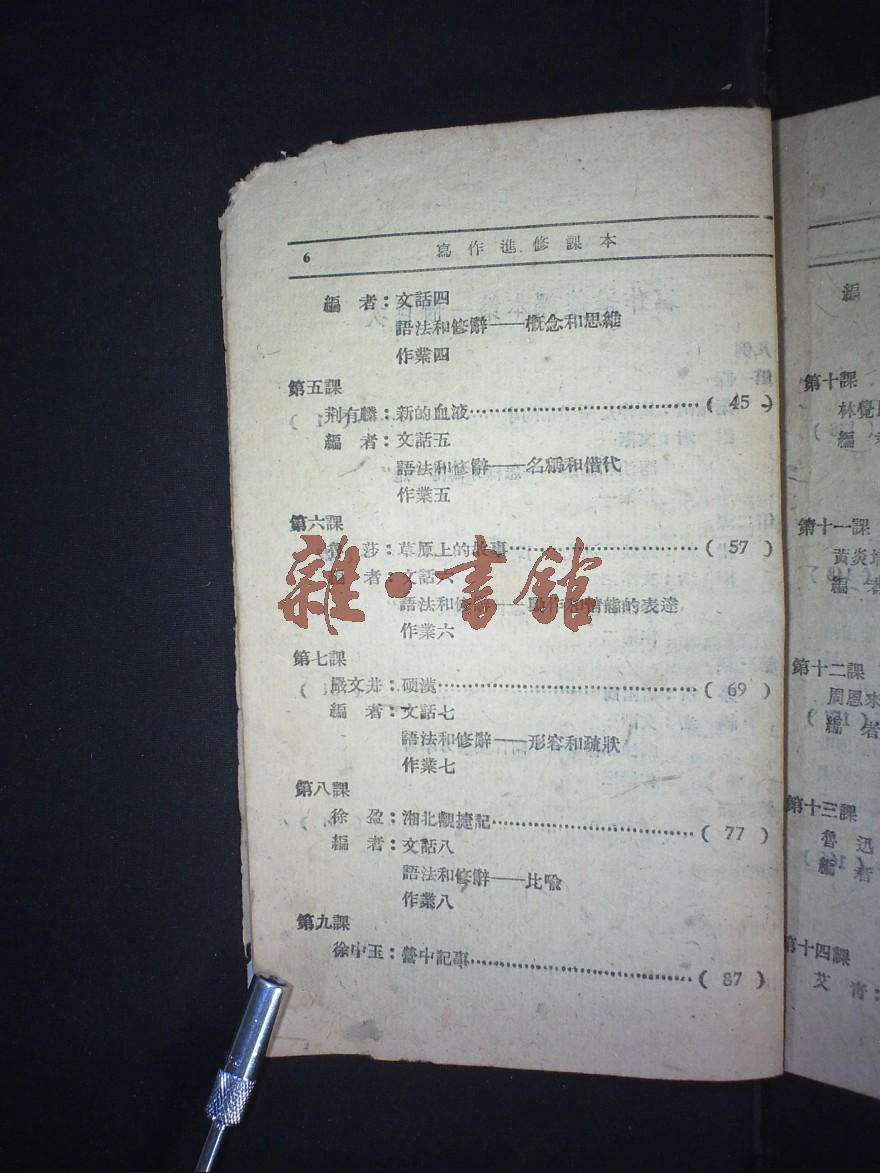 6 寫作進修課本
編 者：文話四
語法和修辭——概念和思維
作業四
第五課
荆有麟：新的血液……………………………( 45 )
編 者：文話五
語法和修辭——名稱和借代
作業五
第六課
莎：草原上的故事………………………( 57 )
編 者：文話六
語法和修辭——動作和情態的表達
作業六
第七課
嚴文井：硬漢………………………………( 69 )
編 者：文話七
語法和修辭——形容和疏狀
作業七
第八課
徐 盈：湘北觀捷記………………………( 77 )
編 者：文話八
語法和修辭——比喩
作業八
第九課
徐中玉：營中記事…………………………( 87 )
編
第十課
林覺
編 者
第十一課
黃炎培
編 者
第十二課
周恩來
編 者
第十三課
魯 迅
編 者
第十四課
艾 青：
雜·書館